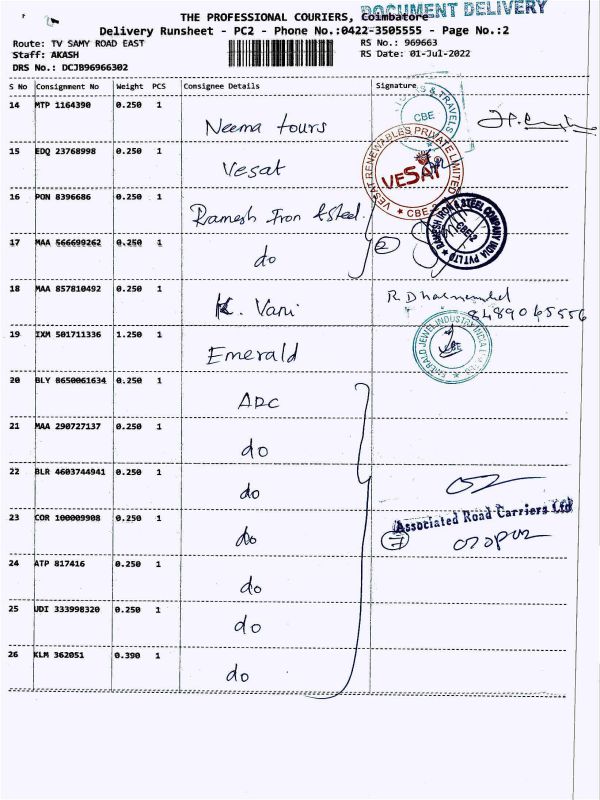 DOCUMENT DELIVERY
THE PROFESSIONAL COURIERS, Coimbatore
Delivery Runsheet - PC2 - Phone No.:0422-3505555 - Page No.:2
Route: TV SAMY ROAD EAST
RS No.: 969663
Staff: AKASH
RS Date: 01-Jul-2022
DRS No.: DCJB96966302
S No Consignment No Weight PCS Consignee Details Signature
14 MTP 1164390 0.250 1 Neema tours
& TRAVELS
CBE
15 EDQ 23768998 0.250 1 Vesat
VESAT RENEWABLES PRIVATE LIMITED
VESAT
16 PON 8396686 0.250 1 Ramesh Iron & Steel.
RAMESH IRON & STEEL COMPANY INDIA PVT LTD
CBE-2
17 MAA 566699262 0.250 1 do
2
18 MAA 857810492 0.250 1 K. Vani
8489065556
19 IXM 501711336 1.250 1 Emerald
EMERALD JEWEL INDUSTRY INDIA
CBE
20 BLY 8650061634 0.250 1 ARC
21 MAA 290727137 0.250 1 do
22 BLR 4603744941 0.250 1 do
23 COR 100009908 0.250 1 do
Associated Road Carriers Ltd
7
24 ATP 817416 0.250 1 do
25 UDI 333998320 0.250 1 do
26 KLM 362051 0.390 1 do